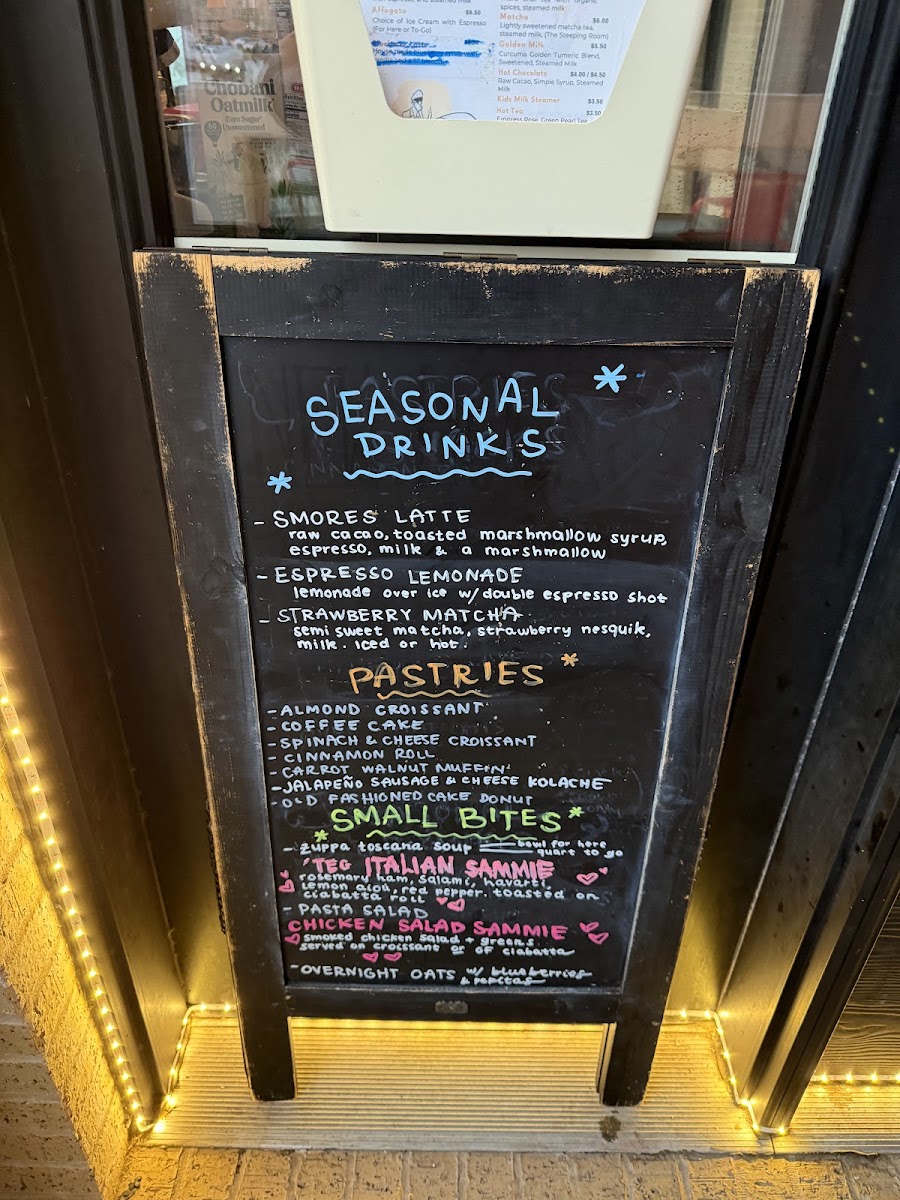 Affogato $6.50
Choice of Ice Cream with Espresso
(For Here or To-Go)
spices, steamed milk
Matcha $6.00
Lightly sweetened matcha tea,
steamed milk, (The Steeping Room)
Golden Milk $5.50
Curcuma Golden Tumeric Blend,
Sweetened, Steamed Milk
Hot Chocolate $4.00 / $4.50
Raw Cacao, Simple Syrup, Steamed
Milk
Kids Milk Steamer $3.50
Hot Tea $3.50
Empress Rose, Green Pearl Tea
Chobani
Oatmilk
Zero Sugar
Unsweetened
SEASONAL
DRINKS
- SMORES LATTE
raw cacao, toasted marshmallow syrup,
espresso, milk & a marshmallow
- ESPRESSO LEMONADE
lemonade over ice w/ double espresso shot
- STRAWBERRY MATCHA
semi sweet matcha, strawberry nesquik,
milk. iced or hot.
PASTRIES
- ALMOND CROISSANT
- COFFEE CAKE
- SPINACH & CHEESE CROISSANT
- CINNAMON ROLL
- CARROT WALNUT MUFFIN
- JALAPEÑO SAUSAGE & CHEESE KOLACHE
- OLD FASHIONED CAKE DONUT
SMALL BITES
- zuppa toscana soup bowl for here
quart to go
'TEG ITALIAN SAMMIE
rosemary ham, salami, havarti,
lemon aioli, red pepper. toasted on
ciabatta roll
- PASTA SALAD
CHICKEN SALAD SAMMIE
smoked chicken salad + greens
served on croissant or GF ciabatta
- OVERNIGHT OATS w/ blueberries
& pepitas